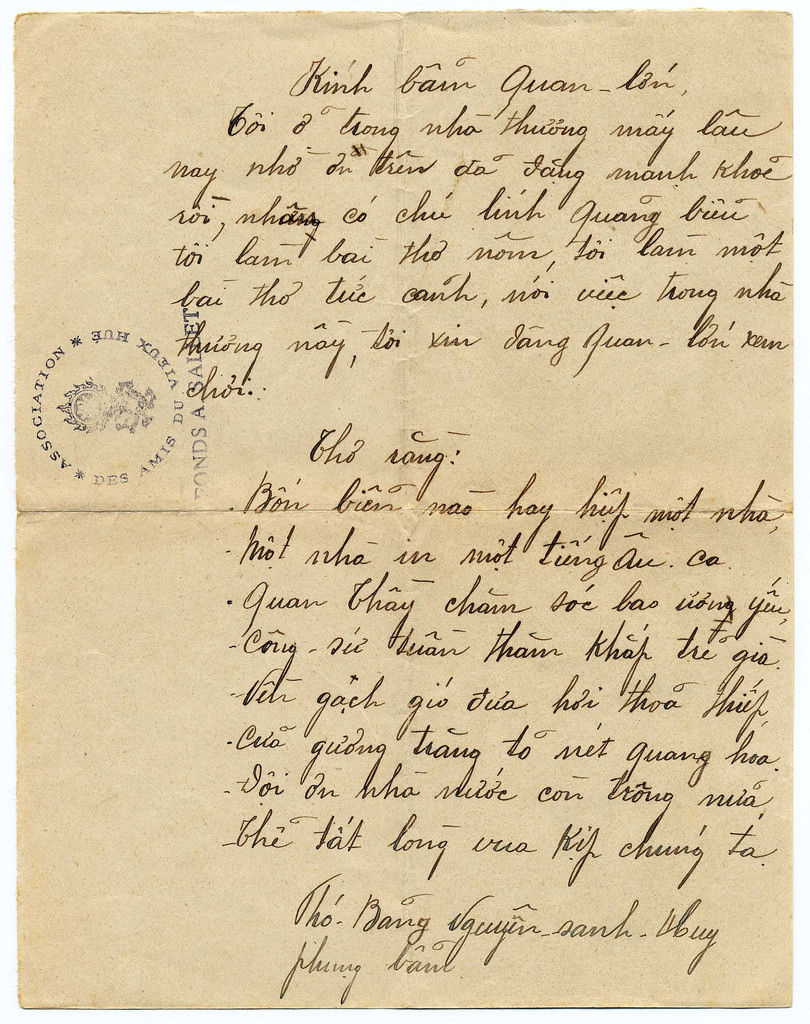 Kính bẩm Quan-lớn,
Tôi ở trong nhà thương mấy lâu
nay nhờ ơn trên đã đặng mạnh khoẻ
rồi, nhưng có chú lính Quảng biểu
tôi làm bài thơ nôm, tôi làm một
bài thơ tức cảnh, nói việc trong nhà
thương nầy, tôi xin dâng Quan-lớn xem
chơi.:
Thơ rằng:
- Bốn biển nào hay hiệp một nhà,
- Một nhà in một tiếng Âu. Ca.
- Quan Thầy chăm sóc bao ương yếu,
- Công-sứ tuần thăm khắp trẻ già.
- Nền gạch gió đưa hơi thoả thiếp,
- Cửa gương trăng tỏ nét quang hoa.
- Đội ơn nhà nước còn trông nữa,
- Thế tất lòng vua kịp chúng ta.
Thơ-Bằng Nguyễn-sanh-Huy
phụng bẩm
ASSOCIATION * DES AMIS DU VIEUX HUE *
FONDS A. SALLET